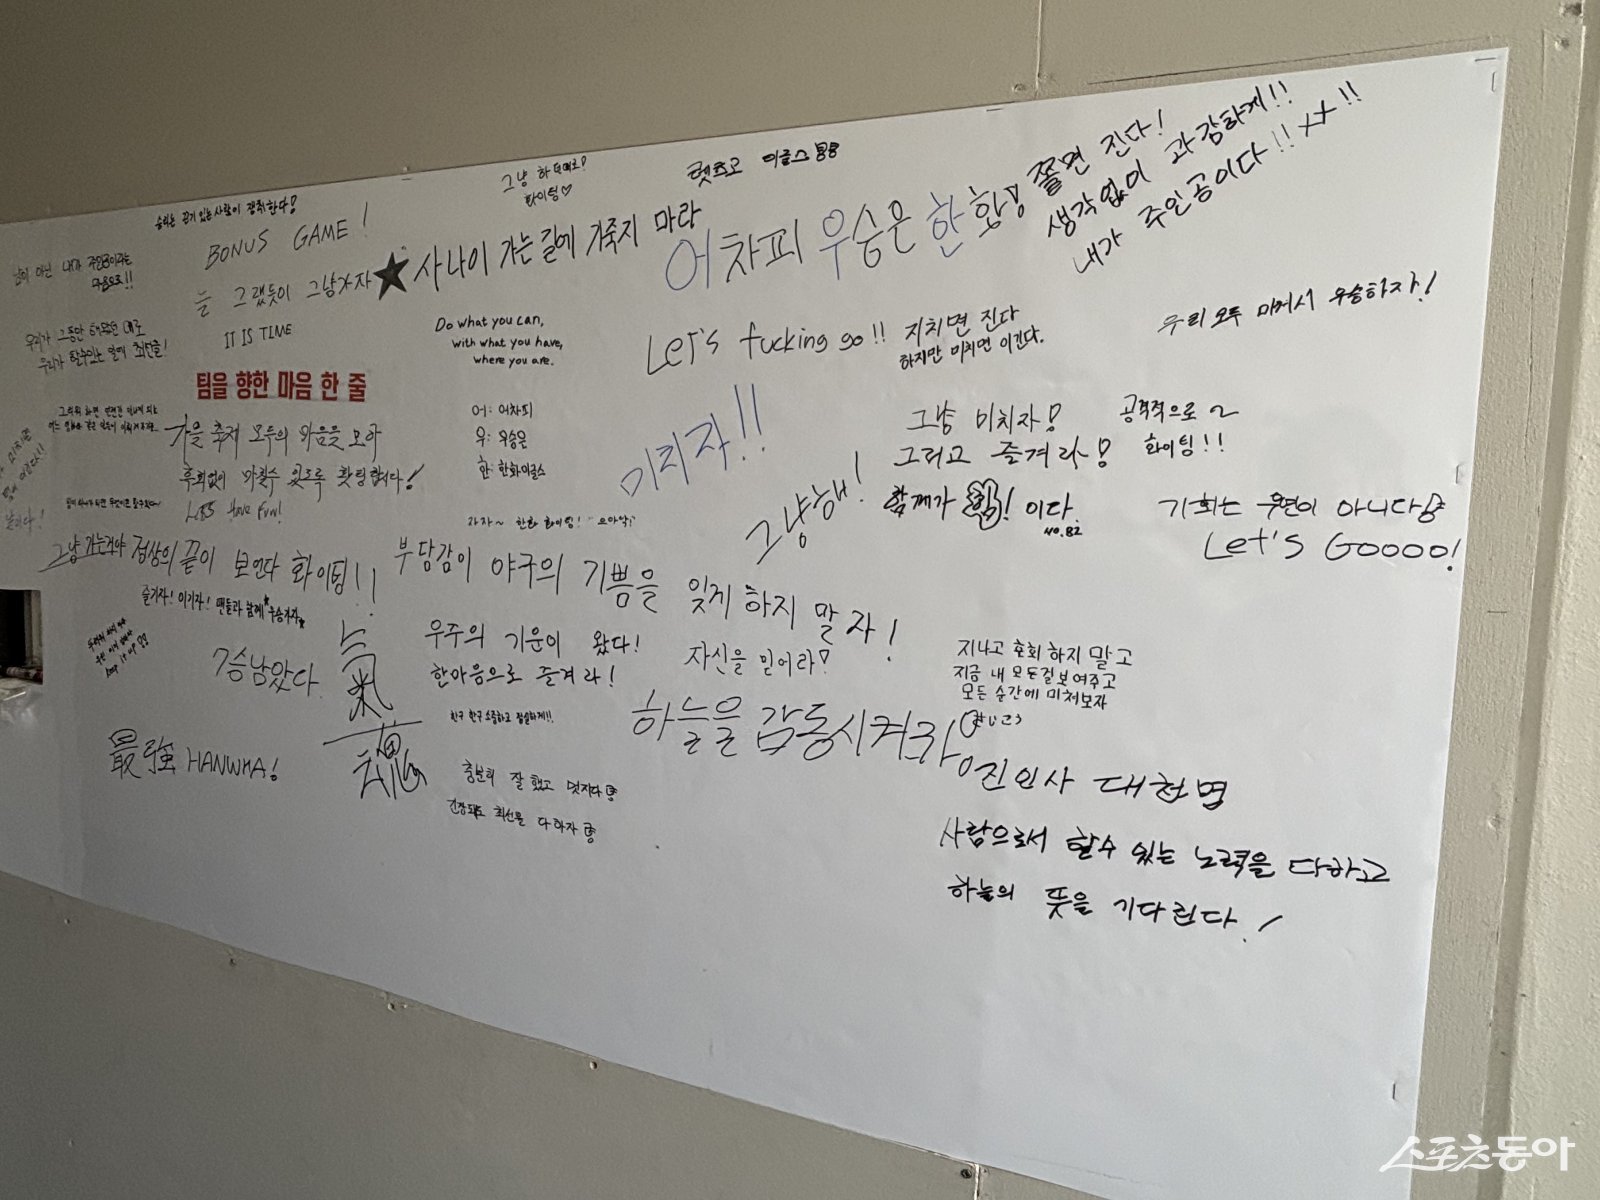 승리는 끈기 있는 사람이 쟁취한다!
그냥 하던대로!
화이팅♡
렛츠고 이글스
BONUS GAME!
남이 아닌 내가 주인공이라는
마음으로!!
늘 그랬듯이 그냥가자
★사나이 가는 길에 기죽지 마라
어차피 우승은 한화!
쫄면 진다!
생각없이 과감하게!!
내가 주인공이다!! XX!!
IT IS TIME
우리가 그동안 해왔던 대로
우리가 할수있는 일에 최선을!
Do what you can,
with what you have,
where you are.
Let's fucking go!!
지치면 진다
하지만 미치면 이긴다.
우리 모두 미쳐서 우승하자!
팀을 향한 마음 한 줄
가을 축제 모두의 마음을 모아
후회없이 마칠수 있도록 홧팅합시다!
LETS Have Fun!
어: 어차피
우: 우승은
한: 한화이글스
미치자!!
그냥 미치자!
그리고 즐겨라!
공격적으로~
화이팅!!
그냥해!
함께가 힘! 이다.
NO.82
기회는 우연이 아니다
Let's Goooo!
가자~ 한화 화이팅!
그냥 가는거야 정상의 끝이 보인다 화이팅!!
부담감이 야구의 기쁨을 잊게 하지 말자!
즐기자! 이기자! 팬들과 함께 우승가자
7승남았다
氣
魂
우주의 기운이 왔다!
한마음으로 즐겨라!
자신을 믿어라!
지나고 후회 하지 말고
지금 내 모든걸 보여주고
모든 순간에 미쳐보자
친구 한구 소중하고 절실하게!!
하늘을 감동시켜라!
最強 HANWHA!
충분히 잘 했고 멋지다
긴장돼도 최선을 다하자
진인사 대천명
사람으로서 할수 있는 노력을 다하고
하늘의 뜻을 기다린다!
스포츠동아